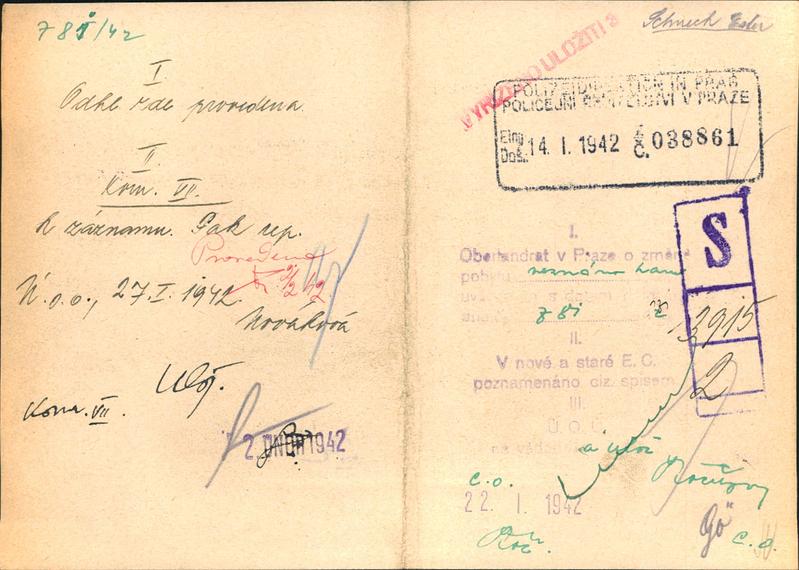 781/42
I.
Odhl zde provedena.
II.
Kom. VII.
k záznamu. Pak rep.
Provedeno
2/2 42
Ú. c. o., 27. I. 1942
Nováková
Ulož.
Kom. VII.
2. ÚNOR 1942
Schneck Ester
ULOŽITI
POLIZEIDIREKTION IN PRAG
POLICEJNÍ ŘEDITELSTVÍ V PRAZE
Eing.
Doš. 14. I. 1942 Z. Č. 038861
S
3915
2
I.
Oberlandrat v Praze o změně
pobytu neznámo kam
zde
II.
V nové a staré E. C.
poznamenáno ciz. spisem
III.
Ú. O. C.
na vědomí
a ulož
c. o.
22. I. 1942
Roč.
Gö
c. o.